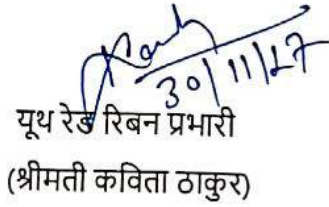 30/11/17
यूथ रेड रिबन प्रभारी
(श्रीमती कविता ठाकुर)